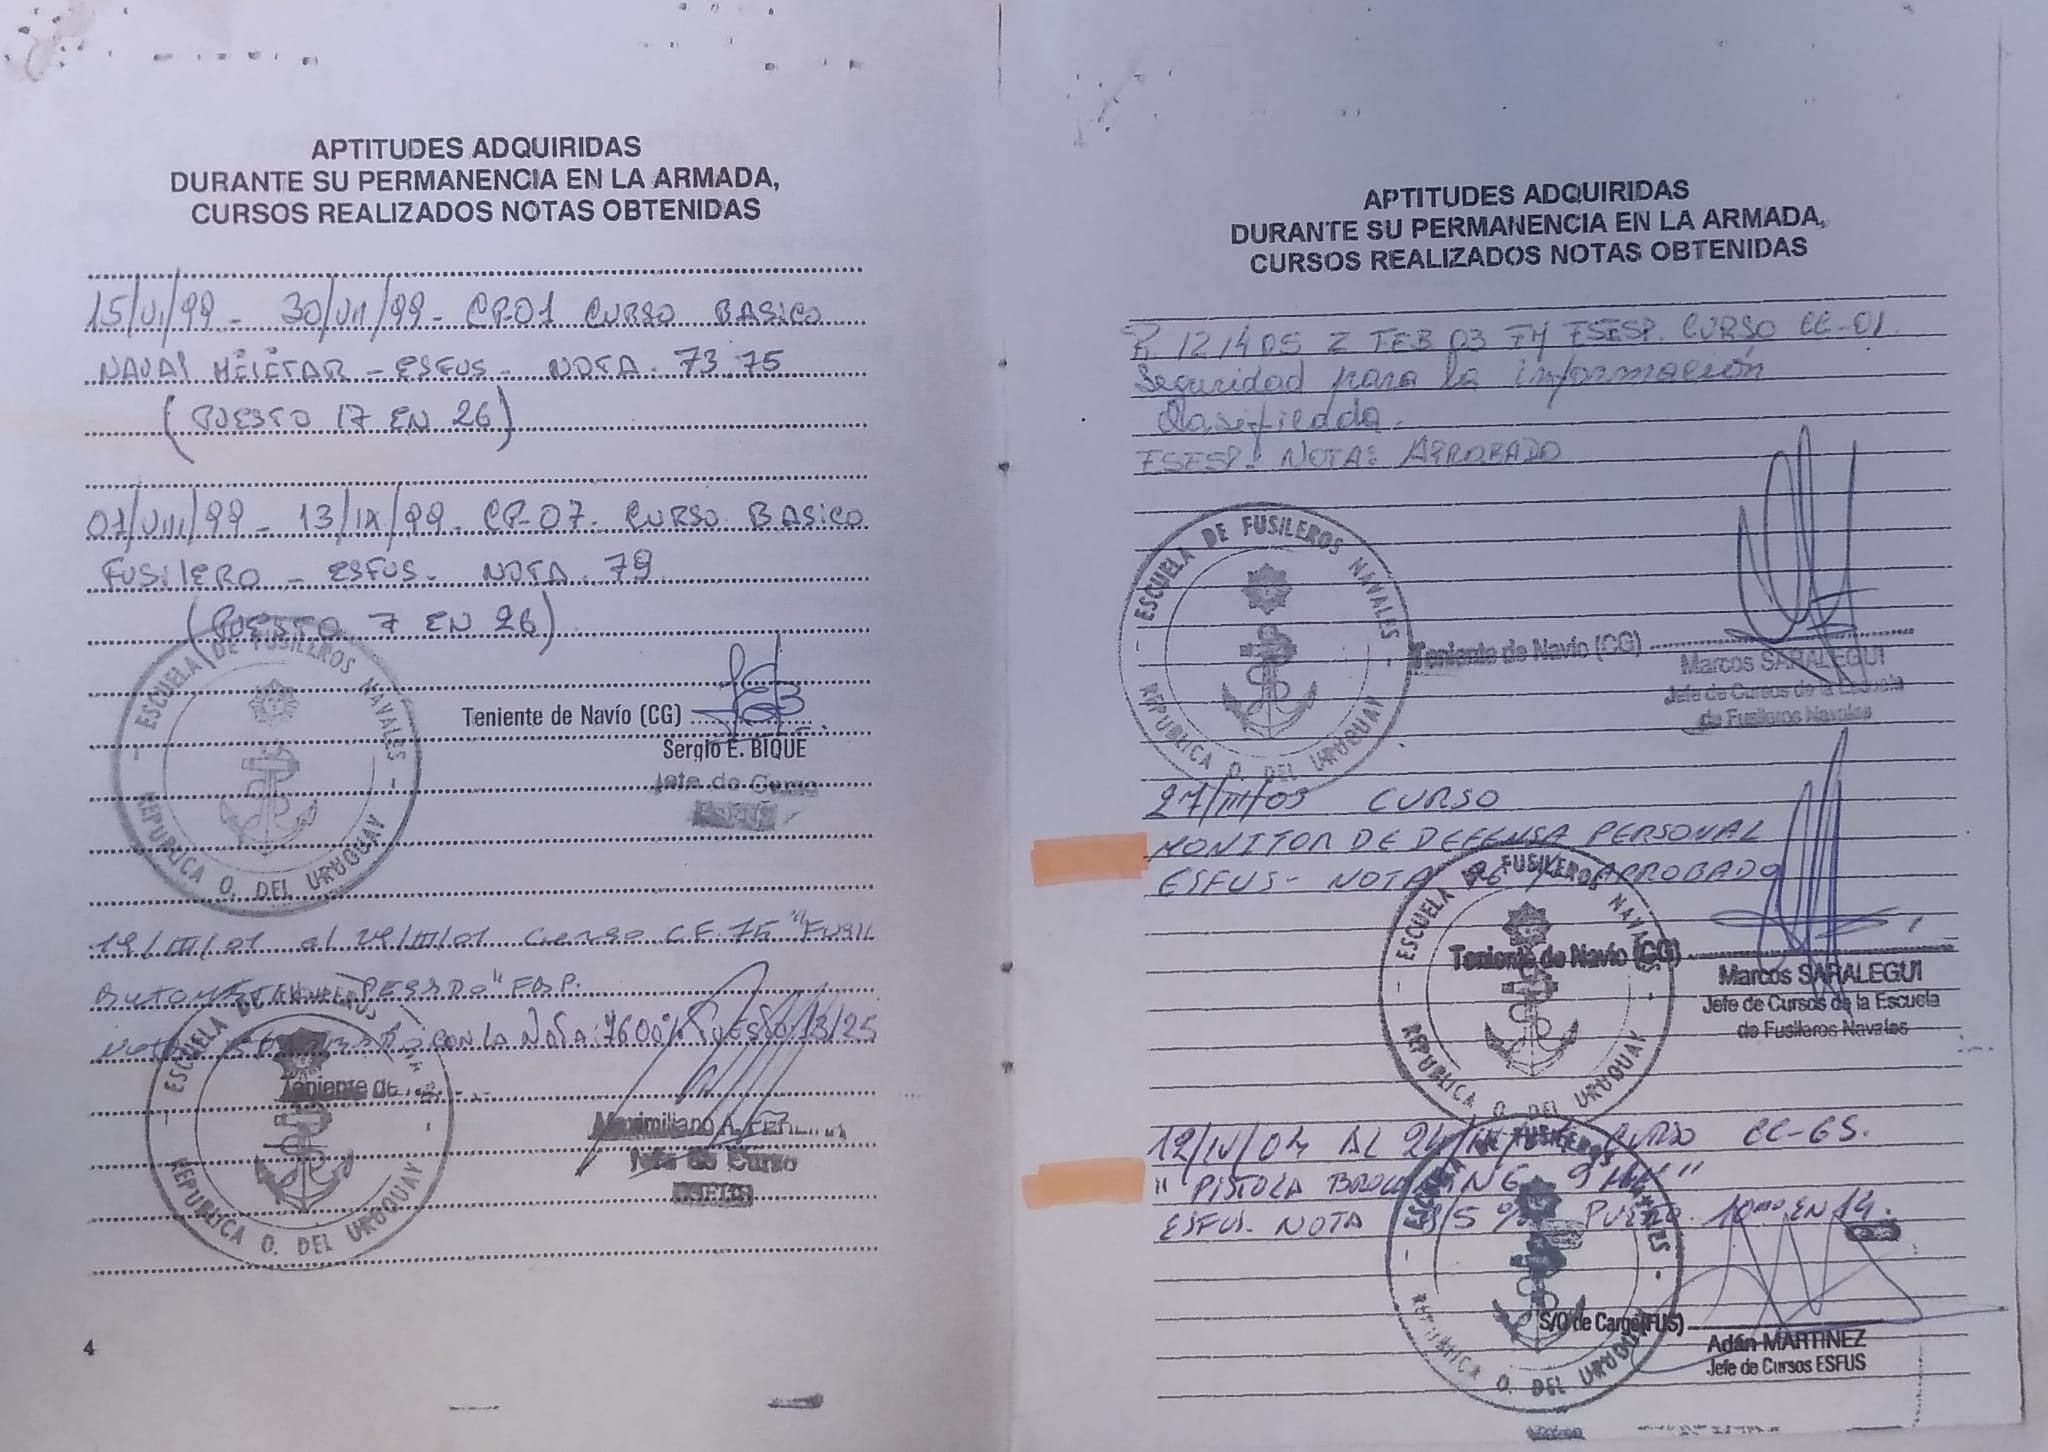 APTITUDES ADQUIRIDAS
DURANTE SU PERMANENCIA EN LA ARMADA,
CURSOS REALIZADOS NOTAS OBTENIDAS
15/VI/99 - 30/VII/99 - CP-01 CURSO BASICO
NAVAL MILITAR - ESFUS - NOTA. 73.75
(PUESTO 17 EN 26)
01/VIII/99 - 13/IX/99 - CP-07. CURSO BASICO
FUSILERO - ESFUS - NOTA. 79
(PUESTO 7 EN 26)
ESCUELA DE FUSILEROS NAVALES
REPUBLICA O. DEL URUGUAY
Teniente de Navío (CG)
Sergio E. BIQUE
Jefe de Curso
ESFUS
19/III/01 al 29/III/01 Curso C.F. 75 "FUSIL
AUTOMATICO PESADO" F.A.P.
CON LA NOTA: 7600% PUESTO 13/25
ESCUELA DE FUSILEROS
REPUBLICA O. DEL URUGUAY
Teniente de
Maximiliano A.
Jefe de Curso
ESFUS
4
APTITUDES ADQUIRIDAS
DURANTE SU PERMANENCIA EN LA ARMADA,
CURSOS REALIZADOS NOTAS OBTENIDAS
R. 121405 Z FEB 03 FM ESESP. CURSO CC-01.
Seguridad para la información
Clasificada.
ESESP - NOTA: APROBADO
ESCUELA DE FUSILEROS NAVALES
REPUBLICA O. DEL URUGUAY
Teniente de Navío (CG)
Marcos SARALEGUI
Jefe de Cursos de la Escuela
de Fusileros Navales
27/III/03 CURSO
MONITOR DE DEFENSA PERSONAL
ESFUS - NOTA APROBADO
ESCUELA DE FUSILEROS NAVALES
REPUBLICA O. DEL URUGUAY
Teniente de Navío (CG)
Marcos SARALEGUI
Jefe de Cursos de la Escuela
de Fusileros Navales
12/IV/04 AL 24/ CURSO CC-65.
" PISTOLA BROWNING 9 MM"
ESFUS - NOTA PUESTO 10mo EN 14.
ESCUELA DE FUSILEROS NAVALES
REPUBLICA O. DEL URUGUAY
S/O de Cargo (FUS)
Adán MARTINEZ
Jefe de Cursos ESFUS